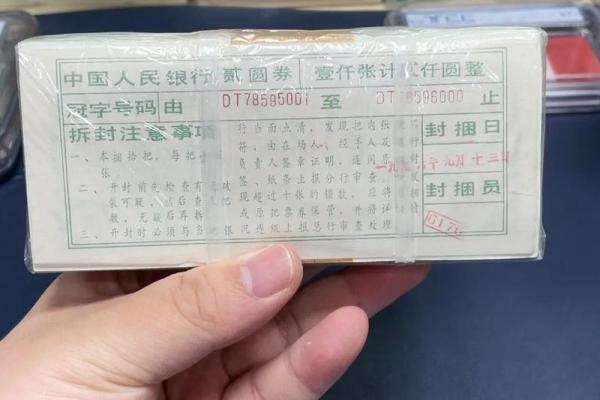 中国人民银行 贰圆券 壹仟张计贰仟圆整
冠字号码由 DT78595001 至 DT78596000 止
拆封注意事项
一、本捆拾把,每把
张
二、开封前先检查有
张可疑,
数,无疑后再拆
三、开封时必须与当地银
行当面点清,发现把内张
符,由在场人、经手人及
负责人签章证明,连同原
签、纸条上报分行审查,
现超过十张的错款,应将
或原把票券保管,并将详
况逐级上报总行审查处理
封捆日
年九月十三日
封捆员
617